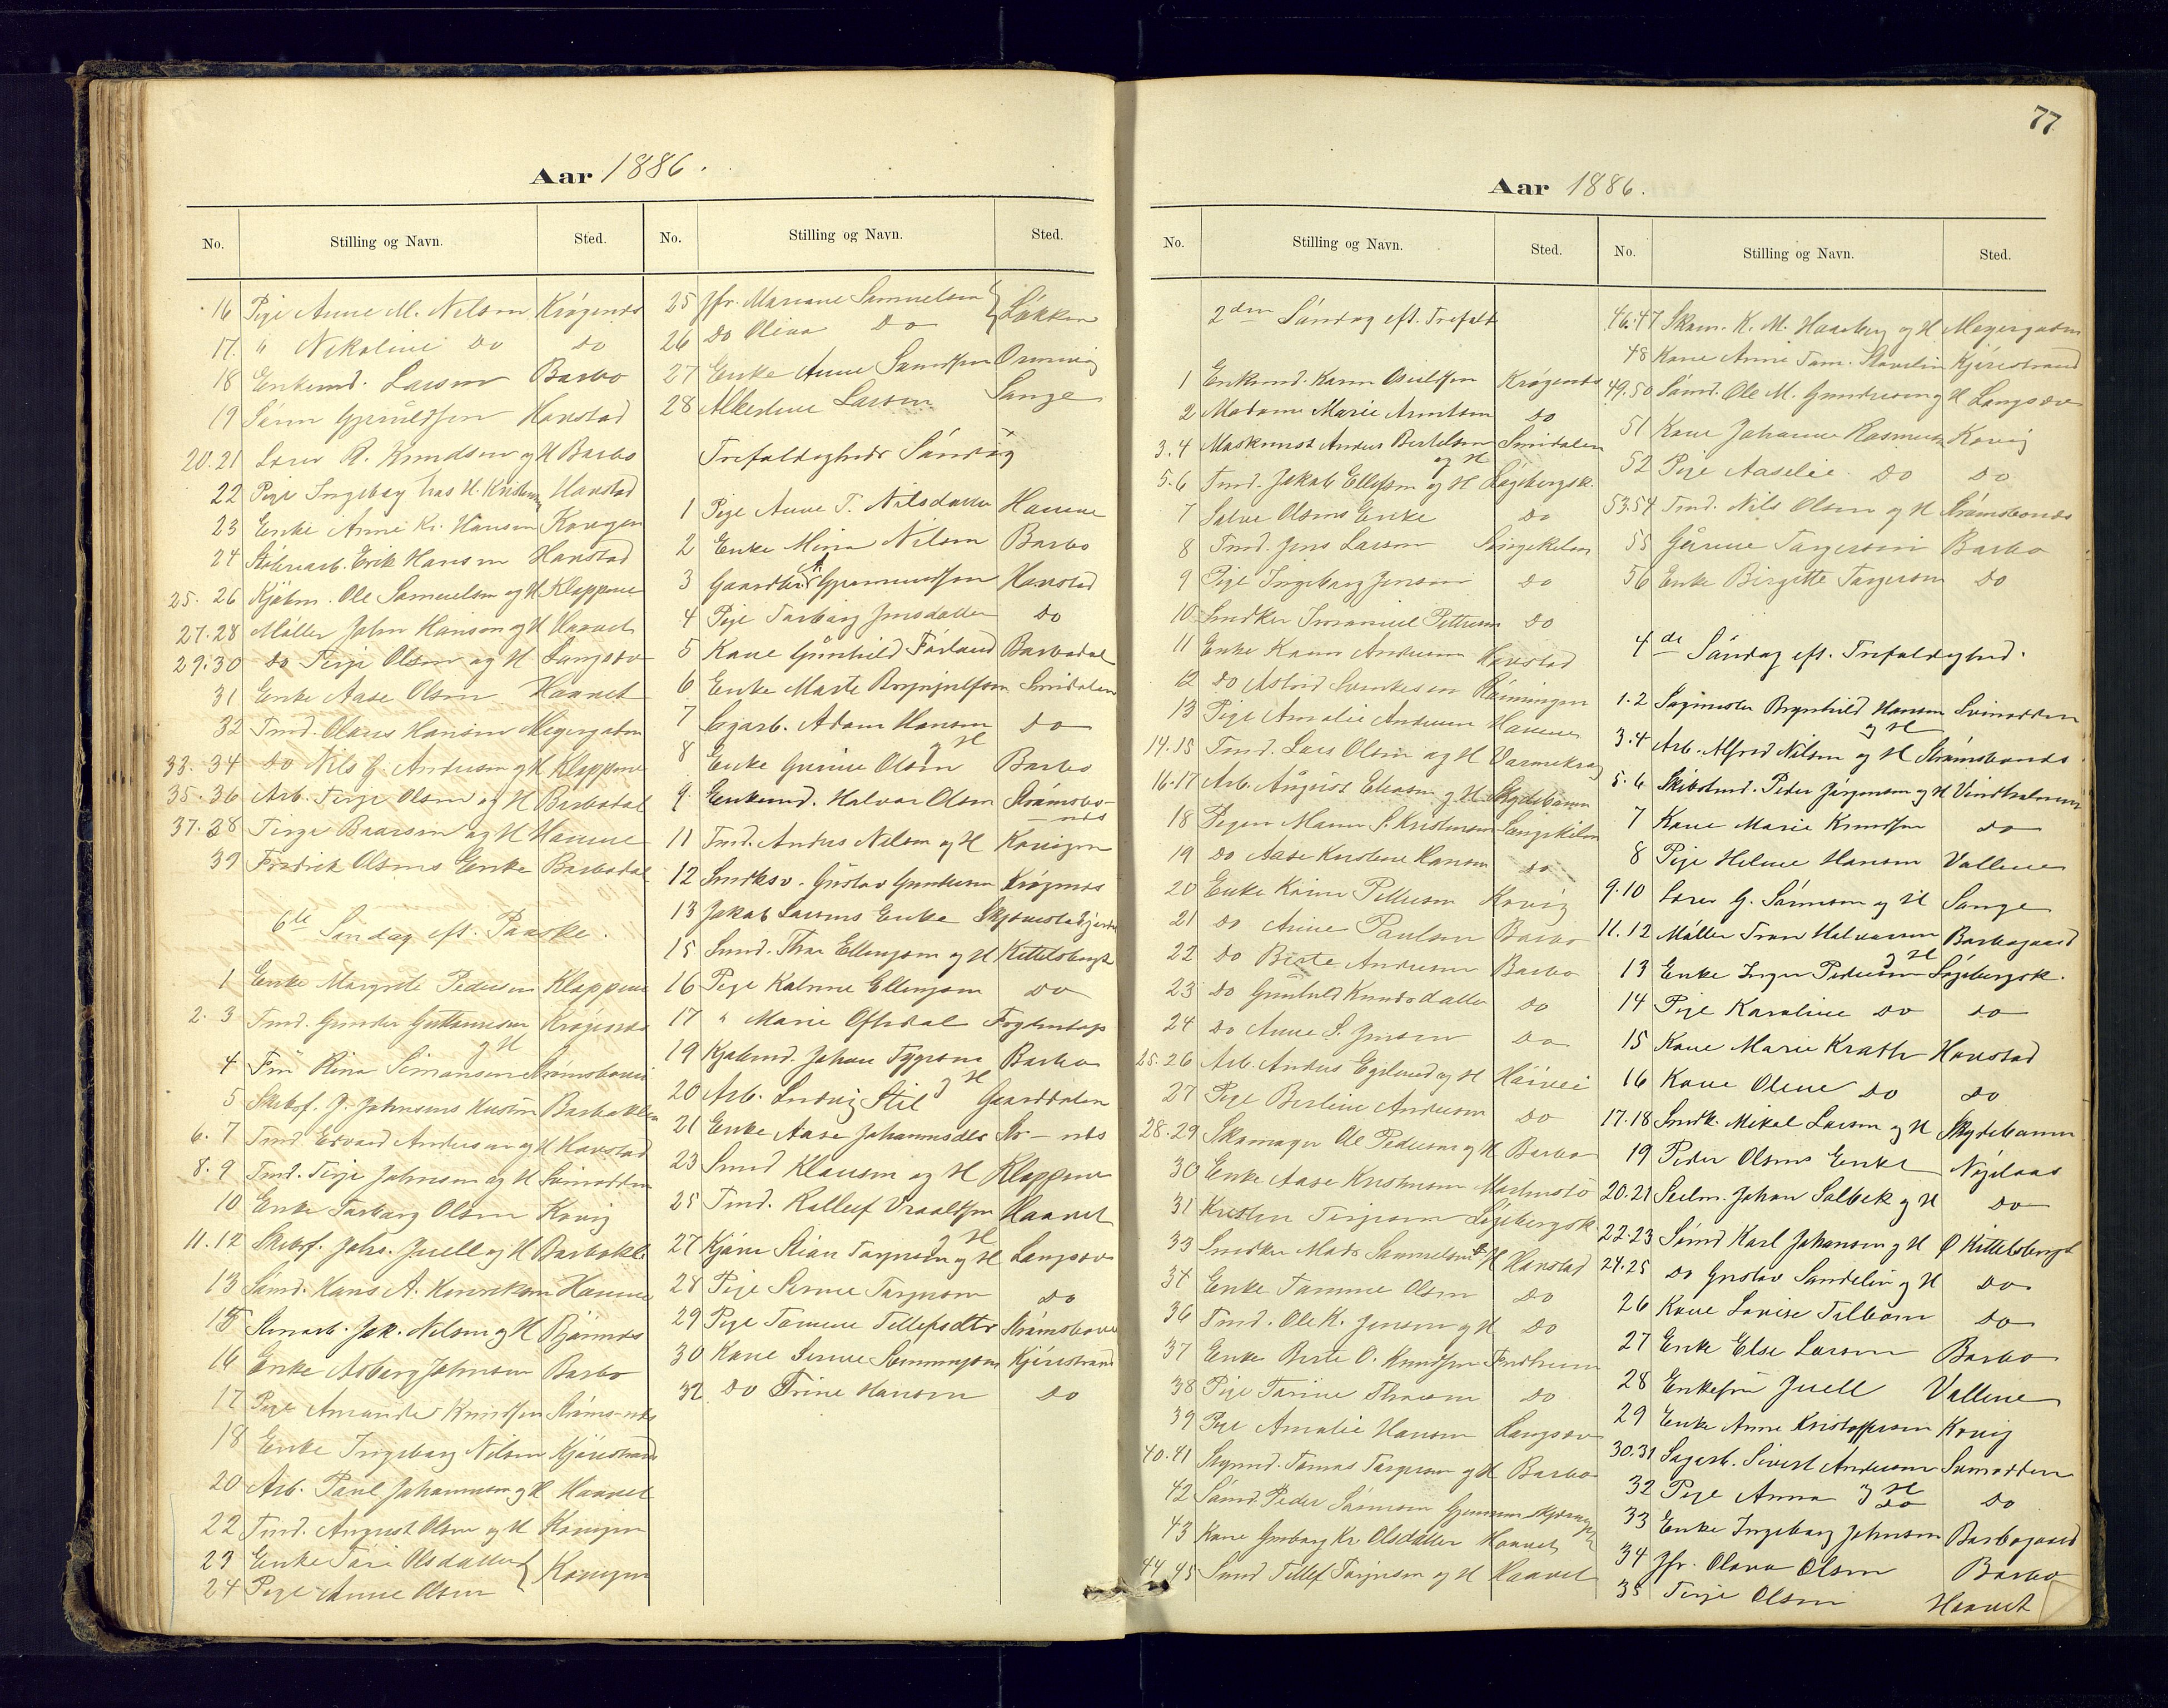 Aar 1886.
No. Stilling og Navn. Sted.
16 Pige Anne M. Nilsen Krøgenes
17. " Nikoline Do Do
18 Enkemd. Larsen Barbo
19 Søren Gjeruldsen Havstad
20.21 Lærer R. Knudsen og H Barbo
22 Pige Ingebag hos H. Kristensen Havstad
23 Enke Anne Kr. Hansen Kovigen
24 Erik Hansen Havstad
25. 26 Kjøbm. Ole Samuelsen og H Klappene
27.28 Møller John Hansen og H Haavet
29.30 do Terje Olsen og H Langsæv
31 Enke Aase Olsen Haavet
32 Tmd. Olaus Hansen Meyergaden
33. 34 do Nils G. Andersen og H Klappene
35.36 Arb. Terje Olsen og H Barbodal
37.38 Terje Baarsen og H Hammene
39 Fredrik Olsens Enke Barbodal
6te Søndag eft. Paaske.
1 Enke Margrete Pedersen Klappene
2. 3 Tmd. Gunder Guttormsen og H Krøgenes
4 Frü Rina Simonsen Strømsbonæs
5 Skibsf. J. Johnsens Hustru Barbokilen
6. 7 Tmd Edvard Andersen og H Havstad
8. 9 Tmd. Terje Johnsen og H Svinodden
10 Enke Tarbarg Olsen Kovig
11.12 Skibsf. Johs. Juell og H Barbokil.
13 Sømd. Hans A. Henriksen Hammene
15 Jak. Nilsen og H Bjønnes
16 Enke Asbarg Johnsen Barbo
17 Pige Amanda Knudsen Strøms-nes
18 Enke Ingebarg Nilsen Kjørestrand
20 Arb. Paul Johannesen og H Haavet
22 Tmd. August Olsen og H Kovigen
23 Enke Tari Olsdatter } Kovigen
24 Pige Anne Olsen
No. Stilling og Navn. Sted.
25 Jfr. Mariane Samuelsen } Løkken
26 Do Olina Do
27 Enke Anne Samdsen
28 Albertine Larsen Lange
Trefoldigheds Søndag
1 Pige Anne T. Nilsdatter Hammene
2 Enke Mina Nilsen Barbo
3 Gaardbr. Havstad
4 Pige Tarbarg Jensdatter Do
5 Kone Günhild Førland Barbodal
6 Enke Marte Smidalen
7 Sagarb. Adam Hansen og H Do
8 Enke Gunne Olsen Barbo
9. Enkemd. Halvor Olsen Strømsbo-nes
11 Tmd. Anders Nilsen og H Kovigen
12 Smedksv. Güstav Gundersen Krøgenes
13 Jakob Larsens Enke
15 Smd. Thor Ellingsen og H Kittelsbugt
16 Pige Katrine Ellingsen Do
17 " Marie Oftedal
19 Kjøbmd. Johan Terjesen og H Barbo
20 Arb. Ludvig Stil Gaarddalen
21 Enke Aase Johannesdtr Str-nes
23 Smed Klausen og H Klappene
25 Tmd. Kallef Vraalsen og H Haavet
27 Kjøre Stian Torjussen og H Langsæv
28 Pige Serine Torjussen do
29 Pige Tomine Tellefsdtr Strømsbonæs
30 Kone Serine Kjørestrand
32 Do Trine Hansen Do
77
Aar 1886.
No. Stilling og Navn. Sted.
2den Søndag eft. Trefold
1 Enkemd. Karen Krøgenes
2 Madam Marie Arntsen do
3.4 Maskinist Anders Bertelsen og H Smidalen
5.6 Tmd. Jakob Ellefsen og H Løgebergsk.
7 Salve Olsens Enke do
8 Tmd. Jens Larsen Songekilen
9 Pige Ingebarg Jensen do
10 Smdker Immanuel Pettersen do
11 Enke Karen Andersen Havstad
12 do Astrid Rønningen
13 Pige Amalie Andersen Hammene
14.15 Tmd. Lars Olsen og H Varmekrog
16.17 Arb. August Eliasen og H Skydebanen
18 Pigen Maren S. Kristensen Songekilen
19 do Aase Kirstine Hansen do
20 Enke Karen Pettersen Kovig
21 do Anne Paulsen Barbo
22 do Birte Andersen Barbo
23 do Gunhild Knudsdatter do
24 do Anne S. Jensen do
25.26 Arb. Anders Egelund og H
27 Pige Berline Andersen do
28.29 Skomager Ole Pedersen og H Barbo
30 Enke Aase Kristensen
31 Kristen Terjesen Løgebergsk.
33 Smedker Mads Samuelsen & H Havstad
34 Enke Tomine Olsen do
36 Tmd. Ole K. Jensen og H do
37 Enke Berte O. Knudsen Fredheim
38 Pige Tarine Thorsen do
39 Pige Amalie Hansen Langsæv
40.41 Tomas Torgersen og H Barbo
42 Sømd. Peder Sørensen
43 Kone Kr. Olsdatter Haavet
44.45 Smd Tellef Torjusen og H Haavet
No. Stilling og Navn. Sted.
46.47 Skom. K. M. Haaberg og H Meyergaden
48 Kone Anne Tom. Kjørestrand
49.50 Sømd. Ole M. Gundersen og H Langsæv
51 Kone Johanne Rasmussen Kovig
52 Pige Aaselie do do
53.54 Tmd. Nils Olsen og H Strømsbonæs
55 Gürine Torgersen Barbo
56 Enke Birgitte Torgersen do
4de Søndag eft. Trefoldighed.
1.2 Sagmester Brynhild Hansen og H Svinodden
3.4 Arb. Alfred Nilsen og H Strømsbonæs
5.6 Skibstmd. Peder Jørgensen og H Vindholmen
7 Kone Marie Knudsen do
8 Pige Helene Hansen Vollene
9.10 Lærer G. Sørensen og H Songe
11.12 Møller Tron Halvorsen og H Barbogaard
13 Enke Inger Pedersen Løgebergsk.
14 Pige Karoline do do
15 Kone Marie Krath Havstad
16 Kone Olene do do
17.18 Smdk. Mikal Larsen og H Skydebanen
19 Peder Olsens Enke
20.21 Seilm. Johan Salbek og H do
22.23 Sømd Karl Johansen og H Ø Kittelsbugt
24.25 do Gustav Sandelin og H do
26 Kone Lovise do
27 Enke Else Larsen Barbo
28 Enkefrü Juell Vollene
29 Enke Anne Kristoffersen Kovig
30.31 Sagarb. Sivert Andersen og H Svinodden
32 Pige Anna do do
33 Enke Ingebarg Johnsen Barbogaard
34 Jfr. Olava Olsen Barbo
35 Terje Olsen Haavet